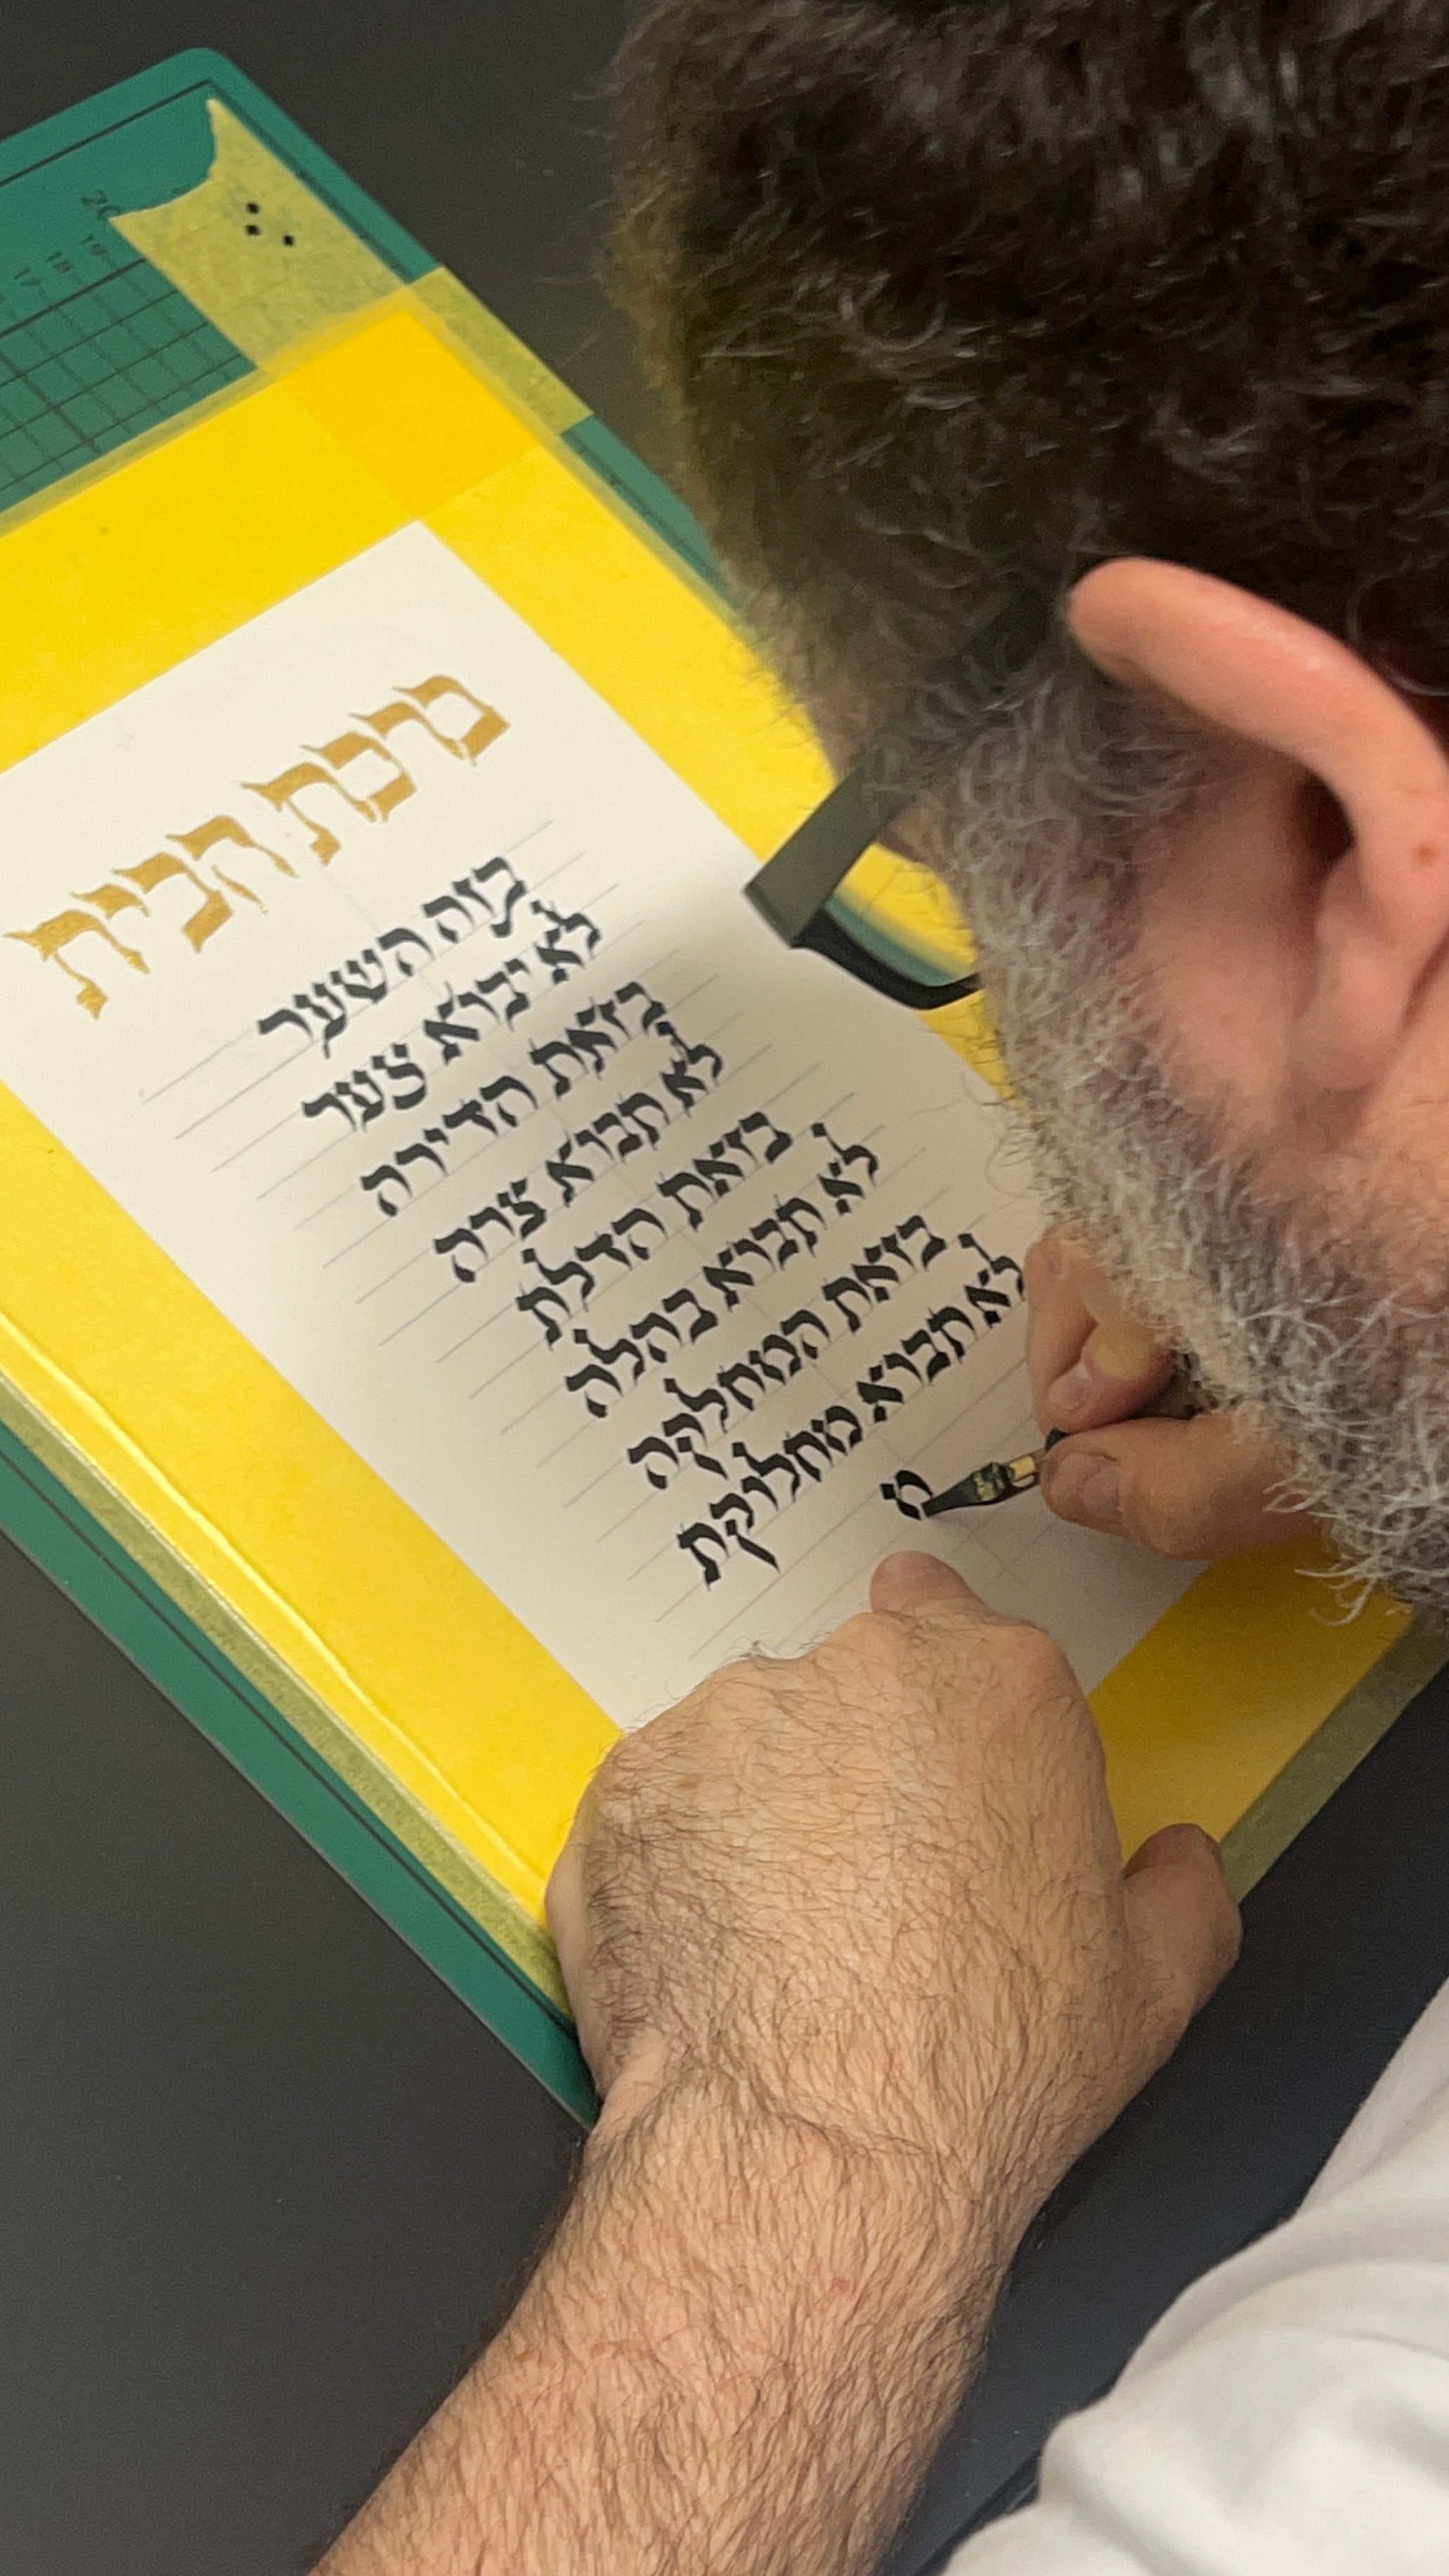 ברכת הבית
בזה השער
לא יבוא צער
בזאת הדירה
לא תבוא צרה
בזאת הדלת
לא תבוא בהלה
בזאת המחלקה
לא תבוא מחלוקת
19
18
17